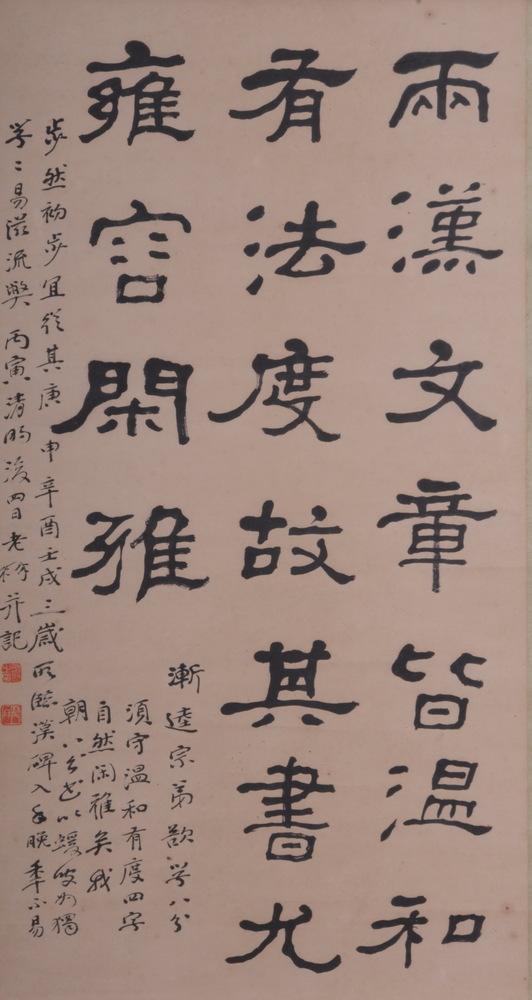 兩漢文章皆温和
有法度故其書尤
雍容閑雅
漸逵宗弟歆學八分
須守温和有度四字
自然閑雅矣我
朝八分
步然初步宜從其庚申辛酉壬戌三歲所臨漢碑入手晚季不易
學〻易滋流獘丙寅清明後四日老 并記